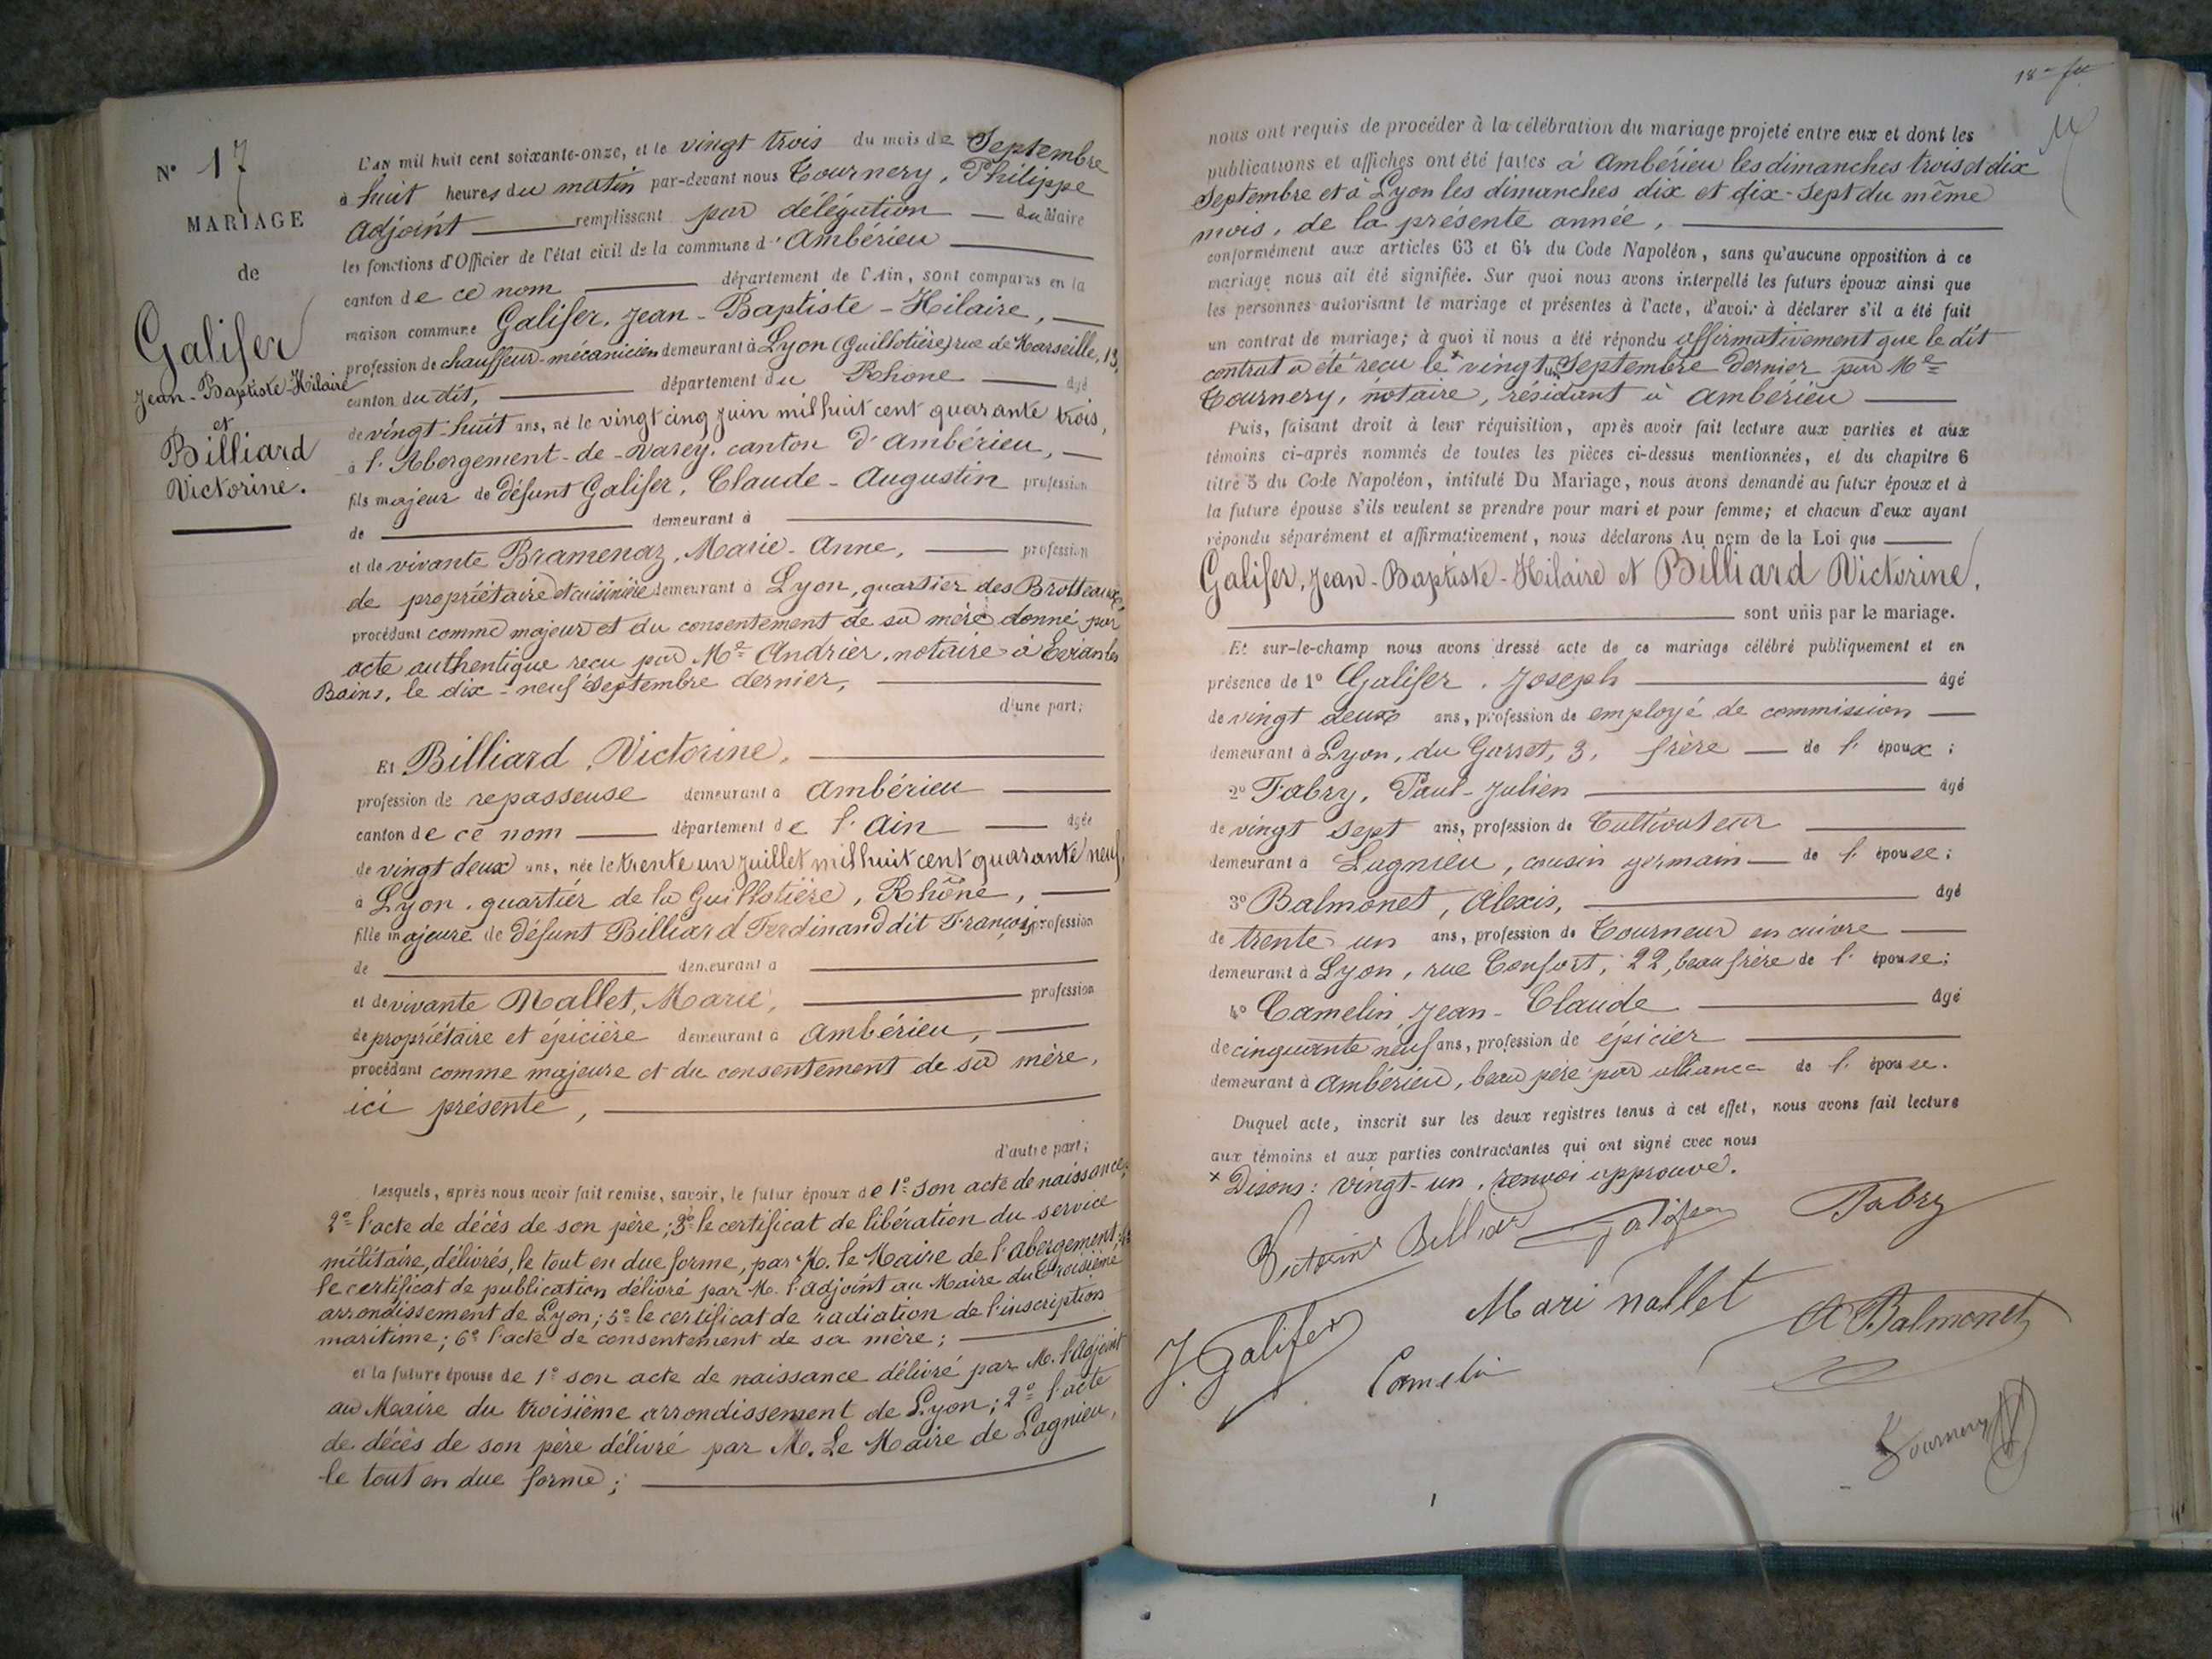 N° 17
MARIAGE
de
Galifer
Jean-Baptiste-Hilaire
et
Billiard
Victorine.
L'AN mil huit cent soixante-onze, et le vingt trois du mois de Septembre
à huit heures du matin par-devant nous Tournery, Philippe
adjoint remplissant par délégation du Maire
les fonctions d'Officier de l'état civil de la commune d'Ambérieu
canton de ce nom département de l'Ain, sont comparus en la
maison commune Galifer, Jean-Baptiste-Hilaire,
profession de chauffeur-mécanicien demeurant à Lyon (Guillotière) rue de Marseille, 13,
canton du dit, département du Rhône âgé
de vingt-huit ans, né le vingt cinq juin mil huit cent quarante trois,
à l'Abergement-de-Varey, canton d'Ambérieu,
fils majeur de défunt Galifer, Claude-Augustin profession
de demeurant à
et de vivante Bramenaz, Marie-Anne, profession
de propriétaire et cuisinière demeurant à Lyon, quartier des Brotteaux,
procédant comme majeur et du consentement de sa mère donné par
acte authentique reçu par Me Andrier, notaire à Evian les
Bains, le dix-neuf Septembre dernier,
d'une part;
Et Billiard, Victorine,
profession de repasseuse demeurant à Ambérieu
canton de ce nom département de l'Ain âgée
de vingt deux ans, née le trente un Juillet mil huit cent quarante neuf,
à Lyon, quartier de la Guillotière, Rhône,
fille majeure de défunt Billiard Ferdinand dit François, profession
de demeurant à
et de vivante Nallet, Marie, profession
de propriétaire et épicière demeurant à Ambérieu,
procédant comme majeure et du consentement de sa mère,
ici présente,
d'autre part;
Lesquels, après nous avoir fait remise, savoir, le futur époux de 1° son acte de naissance;
2° l'acte de décès de son père; 3° le certificat de libération du service
militaire, délivrés, le tout en due forme, par M. le Maire de l'Abergement; 4°
le certificat de publication délivré par M. l'adjoint au Maire du troisième
arrondissement de Lyon; 5° le certificat de radiation de l'inscription
maritime; 6° l'acte de consentement de sa mère;
et la future épouse de 1° son acte de naissance délivré par M. l'Adjoint
au Maire du troisième arrondissement de Lyon; 2° l'acte
de décès de son père délivré par M. Le Maire de Lagnieu,
le tout en due forme;
nous ont requis de procéder à la célébration du mariage projeté entre eux et dont les
publications et affiches ont été faites à Ambérieu les dimanches trois et dix
Septembre et à Lyon les dimanches dix et dix-sept du même
mois, de la présente année,
conformément aux articles 63 et 64 du Code Napoléon, sans qu'aucune opposition à ce
mariage nous ait été signifiée. Sur quoi nous avons interpellé les futurs époux ainsi que
les personnes autorisant le mariage et présentes à l'acte, d'avoir à déclarer s'il a été fait
un contrat de mariage; à quoi il nous a été répondu affirmativement que le dit
contrat a été reçu le x vingt un Septembre dernier par Me
Tournery, notaire, résidant à Ambérieu
Puis, faisant droit à leur réquisition, après avoir fait lecture aux parties et aux
témoins ci-après nommés de toutes les pièces ci-dessus mentionnées, et du chapitre 6
titre 5 du Code Napoléon, intitulé Du Mariage, nous avons demandé au futur époux et à
la future épouse s'ils veulent se prendre pour mari et pour femme; et chacun d'eux ayant
répondu séparément et affirmativement, nous déclarons Au nom de la Loi que
Galifer, Jean-Baptiste-Hilaire et Billiard Victorine,
sont unis par le mariage.
Et sur-le-champ nous avons dressé acte de ce mariage célébré publiquement et en
présence de 1° Galifer, Joseph âgé
de vingt deux ans, profession de employé de commission
demeurant à Lyon, du Garet, 3, frère de l'époux;
2° Fabry, Paul-Julien âgé
de vingt sept ans, profession de Cultivateur
demeurant à Lagnieu, cousin germain de l'épouse;
3° Balmonet, Alexis, âgé
de trente un ans, profession de Tourneur en cuivre
demeurant à Lyon, rue Confort, 22, beau frère de l'épouse;
4° Camelin, Jean-Claude âgé
de cinquante neuf ans, profession de épicier
demeurant à Ambérieu, beau père par alliance de l'épouse.
Duquel acte, inscrit sur les deux registres tenus à cet effet, nous avons fait lecture
aux témoins et aux parties contractantes qui ont signé avec nous
x Disons: vingt-un, renvoi approuvé.
Victorine Billiard Galifer Fabry
Mari nallet A Balmonet
J. Galifer Camelin
Tournery